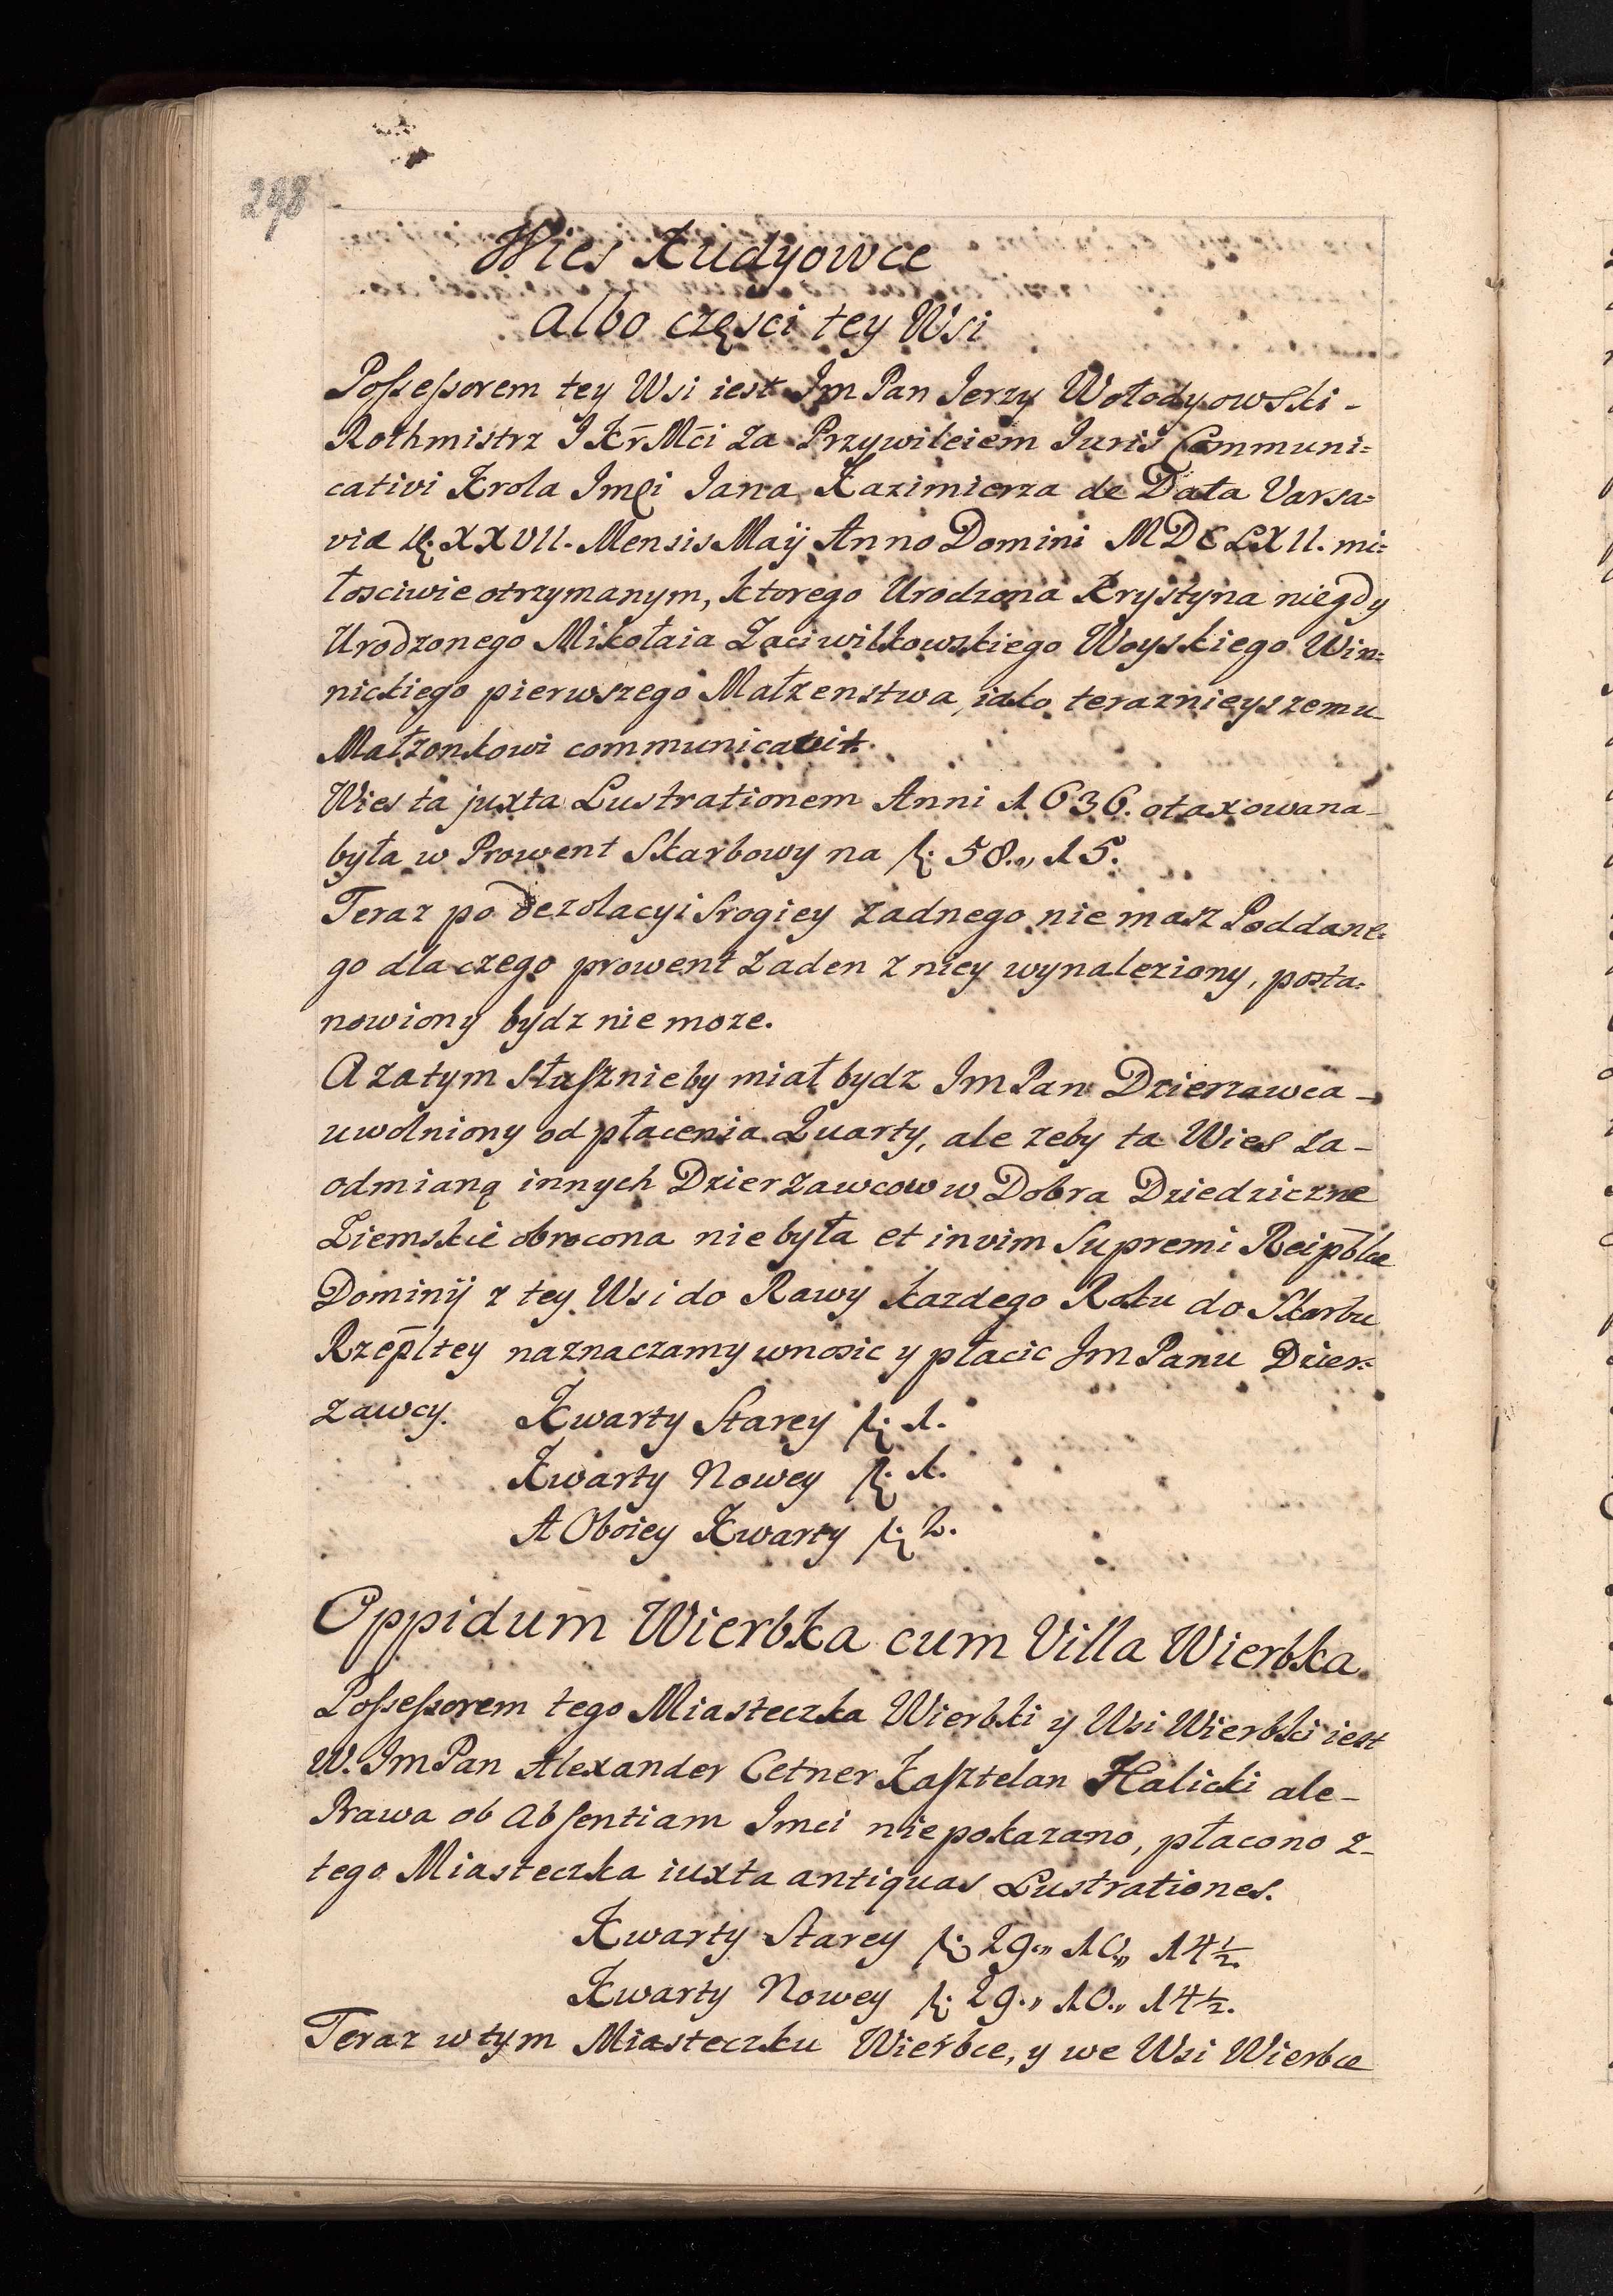 298
Wies Kudyowce
albo części tey Wsi
Possessorem tey Wsi iest Jm Pan Jerzy Wołodyowski -
Rothmistrz J Kr̃ Mc̃i za Przywileiem Iuris Communi=
cativi Krola Jmci Jana Kazimierza de Data Varsa=
viæ XXVII. Mensis Maÿ Anno Domini MDCLXII. mi=
łosciwie otrzymanym, ktorego Urodzona Krystyna niegdy
Urodzonego Mikołaia Zaciwilkowskiego Woyskiego Win=
nickiego pierwszego Małzenstwa, iako teraznieyszemu
Małzonkowi communicavit.
Wies ta juxta Lustrationem Anni 1636. otaxowana -
była w Prowent Skarbowy na f: 58.„ 15.
Teraz po dezolacyi srogiey zadnego nie masz Poddane=
go dla czego prowent zaden z niey wynaleziony, posta=
nowiony bydz nie moze.
A zatym słusznieby miał bydz Jm Pan Dzierzawca -
uwolniony od płacenia Quarty, ale zeby ta Wies za -
odmianą innych Dzierzawcow w Dobra Dziedziczne
Ziemskie obrocona nie była et in vim Supremi Reip̃blce
Dominÿ z tey Wsi do Rawy kazdego Roku do Skarbu
Rzep̃ltey naznaczamy wnosic y płacic Jm Panu Dzier=
zawcy. Kwarty Starey f: 1.
Kwarty Nowey f: 1.
A Oboiey Kwarty f: 2.
Oppidum Wierbka cum Villa Wierbka
Possessorem tego Miasteczka Wierbki y Wsi Wierbki iest
W. Jm Pan Alexander Cetner Kasztelan Halicki ale -
Prawa ob absentiam Jmci nie pokazano, płacono z -
tego Miasteczka iuxta antiquas Lustrationes.
Kwarty Starey f: 29.„ 10„ 14½.
Kwarty Nowey f: 29.„ 10.„ 14½.
Teraz w tym Miasteczku Wierbce, y we Wsi Wierbce